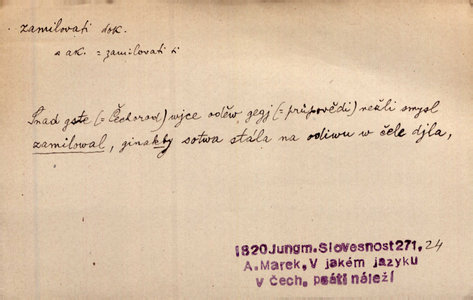 zamilovati dok.
a ak. = zamilovati si
Snad gste (= Čechorod) wjce oděw gegj (= průpovědi) nežli smysl
zamilowal, ginakby sotwa stála na odiwu w čele djla,
1820 Jungm. Slovesnost 271, 24
A. Marek, V jakém jazyku
v Čech. psáti náleží